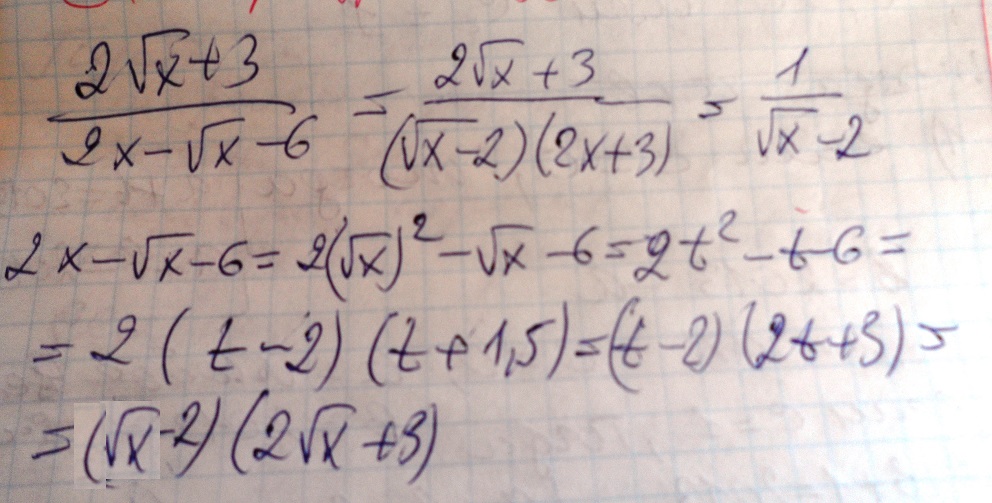 (2√x+3)/(2x-√x-6) = (2√x+3)/((√x-2)(2x+3)) = 1/(√x-2)
2x-√x-6=2(√x)²-√x-6=2t²-t-6=
=2(t-2)(t+1,5)=(t-2)(2t+3)=
=(√x-2)(2√x+3)